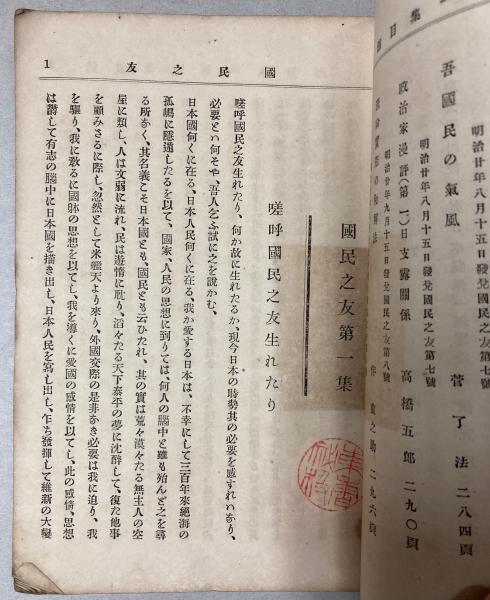 目集
明治廿年八月十五日發兌國民之友第七號
吾國民の氣風 菅了法 二八四頁
明治廿年八月十五日發兌國民之友第七號
政治家漫評(第一)日支露關係 高橋五郎 二九〇頁
明治廿年九月十五日發兌國民之友第八號
之助 二九六頁
國民之友
1
國民之友第一集
嗟呼國民之友生れたり
嗟呼國民之友生れたり、何か故に生れたるか、現今日本の時勢其の必要を感すれはあり、
必要とハ何そや吾人乞ふ試に之を說かむ、
日本國何くに在る、日本人民何くに在る、我か愛する日本は、不幸にして三百年來絕海の
孤嶋に隱遁したるを以て、國家、人民の思想に到りては、何人の腦中と雖も殆んと之を尋
る所なく、其名義こそ日本國とも、國民とも云ひたれ、其の實は荒々漠々たる無主人の空
屋に類し、人は文弱に流れ、民は遊惰に耽り、滔々たる天下泰平の夢に沈醉して、復た他事
を顧みさるに際し、忽然として米艦天より來り、外國交際の是非なき必要は我に迫り、我
を驅り、我に敎るに國躰の思想を以てし、我を導くに愛國の感情を以てし、此の感情、思想
は欝して有志の腦中に日本國を描き出し、日本人民を寫し出し、乍ち發揮して維新の大變